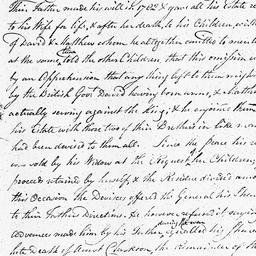 Their Father made his will in 1782 & gave all his Estate re
to his Wife for life, & after her death, to his Children, with
of David & Matthew whom he altogether omitted to ment
at the same time told the other Children, that this omission w
by an Apprehension that any thing left to them might
by the British Govt. David having born arms, & Matthew
actually serving against the King; & he enjoined them
his Estate with those two of their Brothers in like man
had been devised to them all. Since the Peace his re
was sold by his Widow at the Request of her Children,
proceeds retained by herself, & the Residue divided amo
this Occasion the Devisees offered the General his Share
to their Fathers Directions. He however refused it saying
advances made him by his Father, during the war equalled his Share
late death of Amost the remainder of the